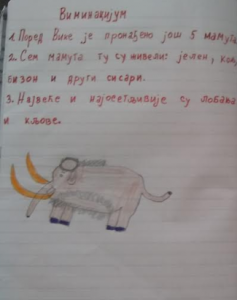 Виминацијум
1. Поред Вике је пронађено још 5 мамута
2. Сем мамута ту су живели: јелен, коњ,
бизон и други сисари.
3. Највеће и најосетљивије су лобања
и кљове.